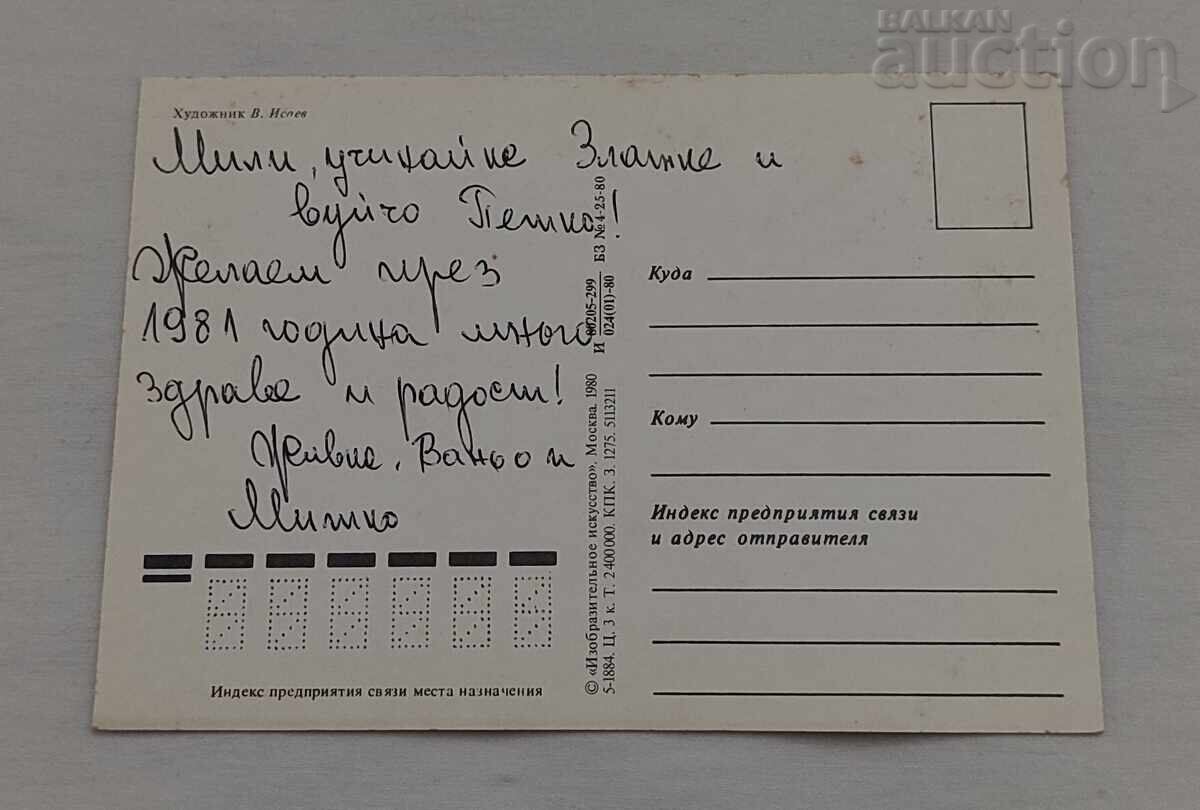 BALKAN
auction
Художник В. Исаев
Мили, учинайке Златке и
вуйчо Петко!
Желаем през
1981 година много
здраве и радост!
Живка, Ваньо и
Митко
Индекс предприятия связи места назначения
© «Изобразительное искусство». Москва. 1980
5-1884. Ц. 3 к. Т. 2 400 000. КПК. З. 1275. 5113211
И 80205-299
024(01)-80
БЗ №4-25-80
Куда
Кому
Индекс предприятия связи
и адрес отправителя